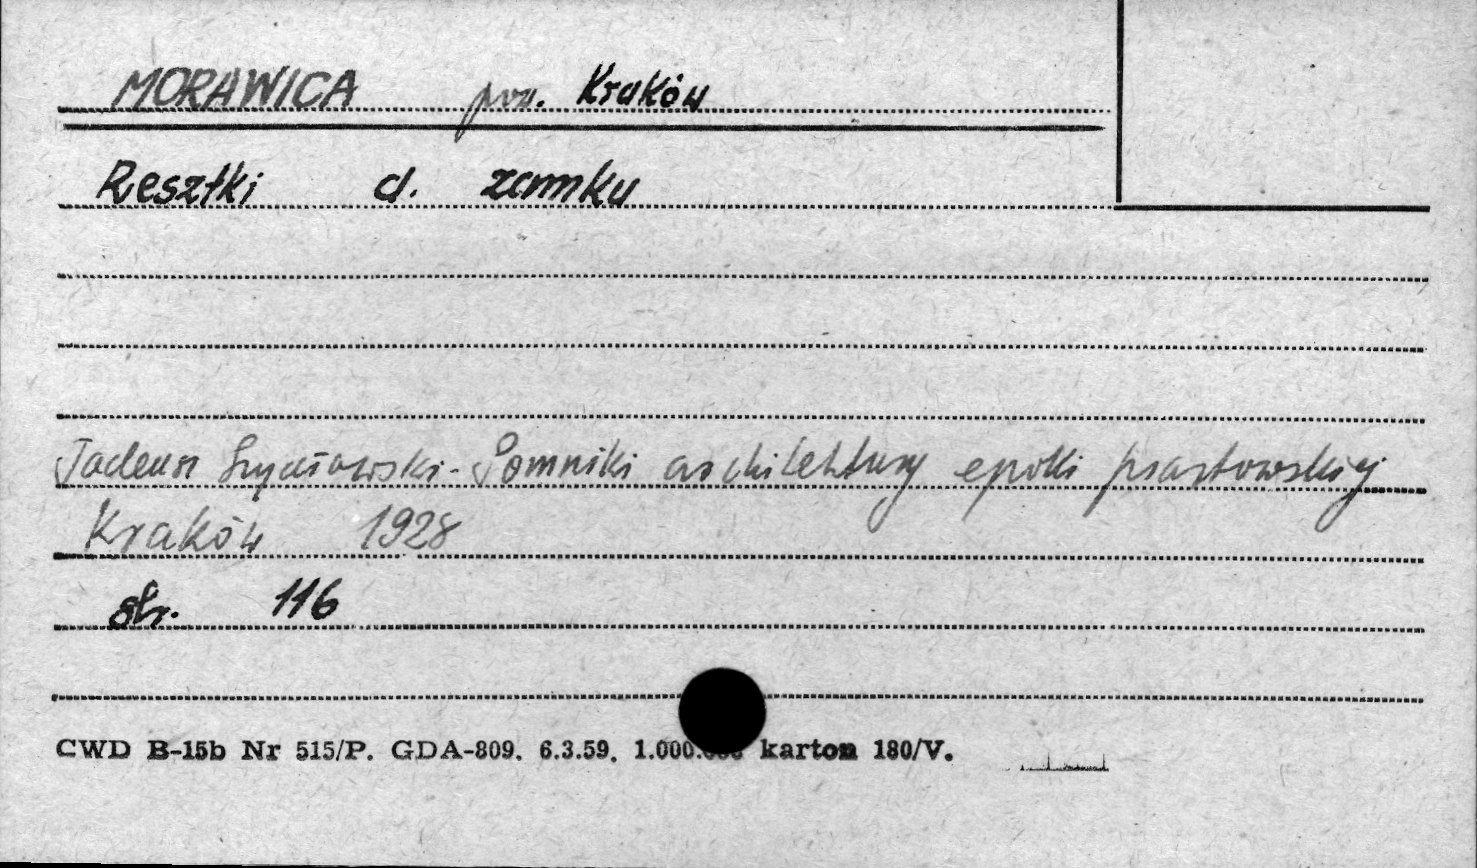 MORAWICA pow. Kraków
Resztki d. zamku
Tadeusz Szydłowski - Pomniki architektury epoki piastowskiej
Kraków 1928
str. 116
CWD B-15b Nr 515/P. GDA-809. 6.3.59. 1.000.000 karton 180/V.